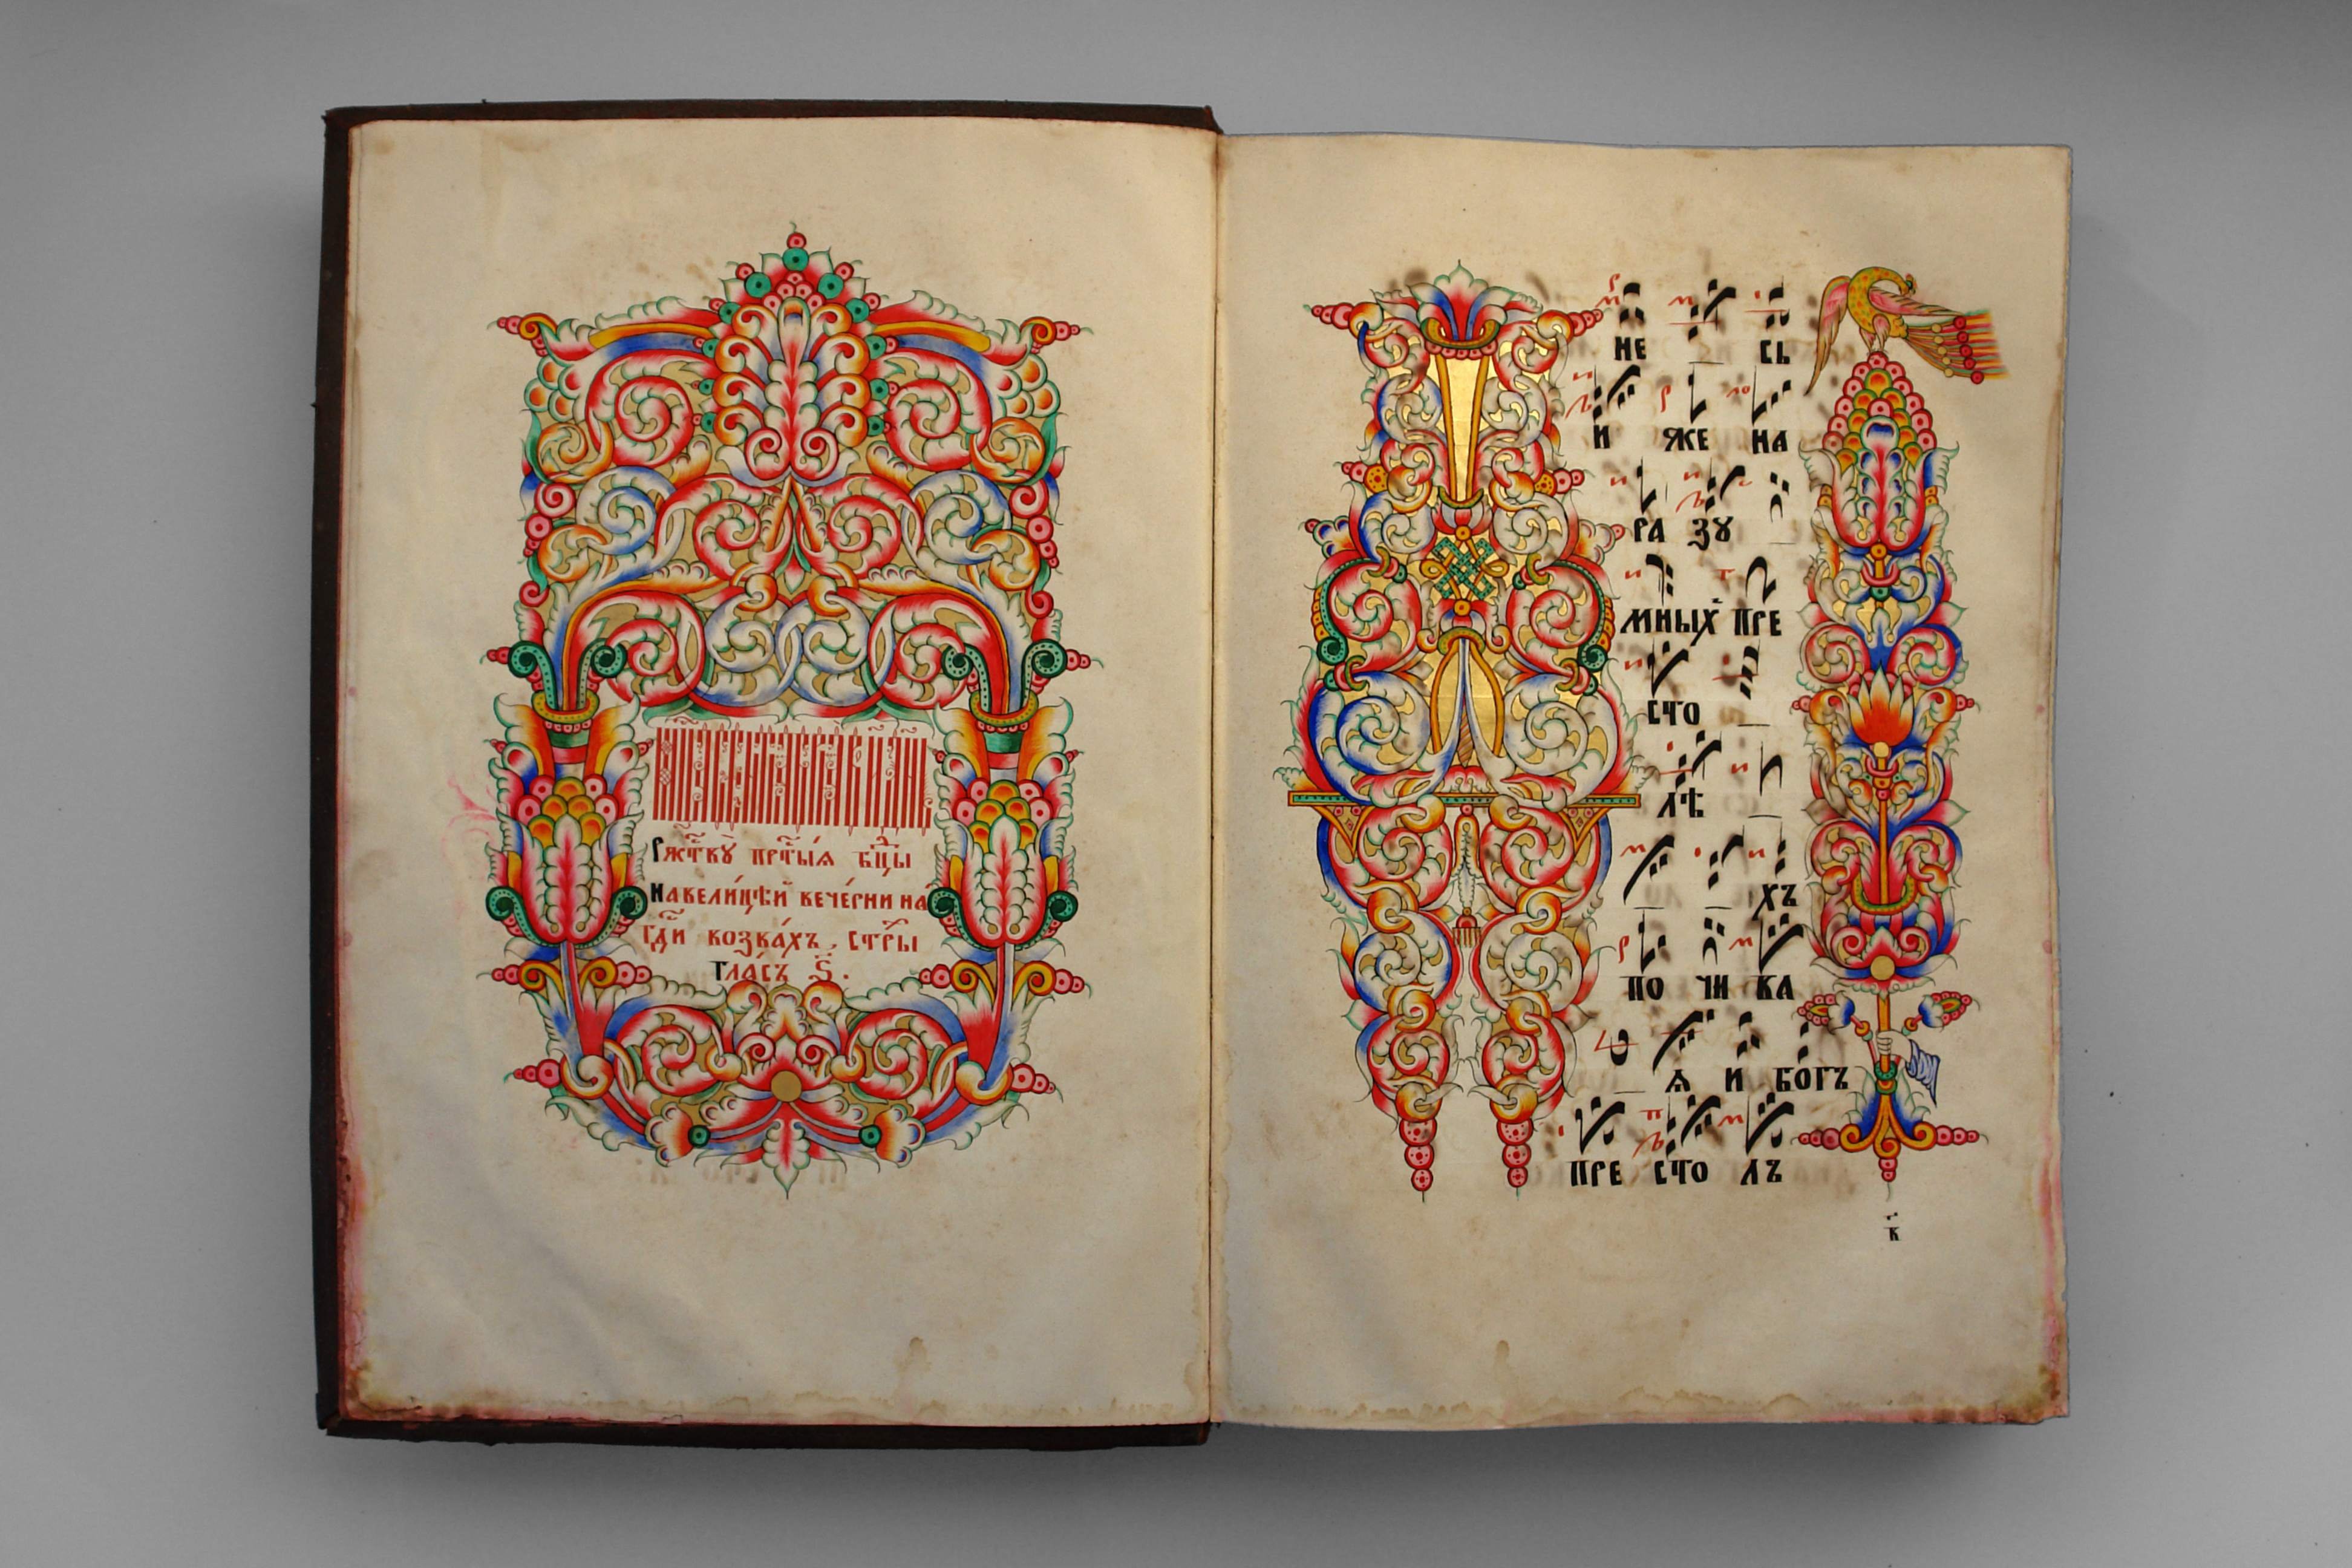 Рж҃твꙋ̀ прⷭ҇ты́ѧ бц҃ы
Навели́цѣй вече́рни на
гд҇и воззва́хъ, стⷯры
гла́съ ѕ҃.
НЕ СЬ
И ЖЕ НА
РА ЗꙊ
МНЫХ̾ ПРЕ
СТО
ЛѢ
ХЪ
ПО ЧИ ВА
Ѧ И БОГЪ
ПРЕ СТО ЛЪ
в҃